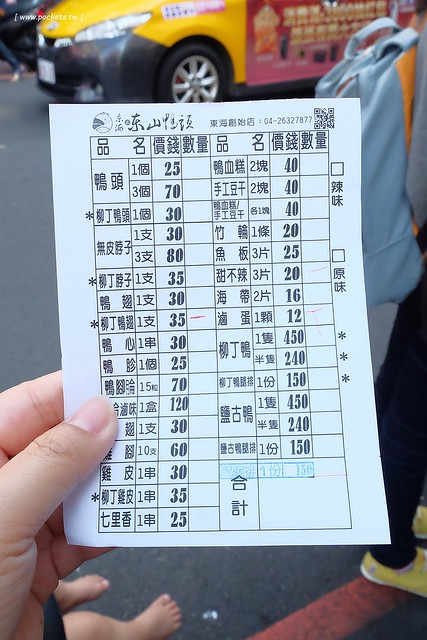 [ www.pockets.tw ]
東山鴨頭 東海創始店：04-26327877
品名 價錢 數量 品名 價錢 數量
鴨頭 1個 25
3個 70
*柳丁鴨頭 1個 30
無皮脖子 1支 30
3支 80
*柳丁脖子 1支 35
鴨翅 1支 30
*柳丁鴨翅 1支 35
鴨心 1串 30
鴨胗 1個 25
鴨腳 15粒 70
滷味 1盒 120
翅 1支 30
腳 10支 60
雞皮 1串 30
*柳丁雞皮 1串 35
七里香 1串 25
鴨血糕 2塊 40
手工豆干 2塊 40
鴨血糕/手工豆干 各1塊 40
竹輪 1條 20
魚板 3片 25
甜不辣 3片 20
海帶 2片 16
滷蛋 1顆 12
柳丁鴨 1隻 450 *
半隻 240 *
柳丁鴨腿排 1份 150 *
鹽古鴨 1隻 450
半隻 240
鹽古鴨腿排 1份 150
1份 150
合計
□辣味
□原味